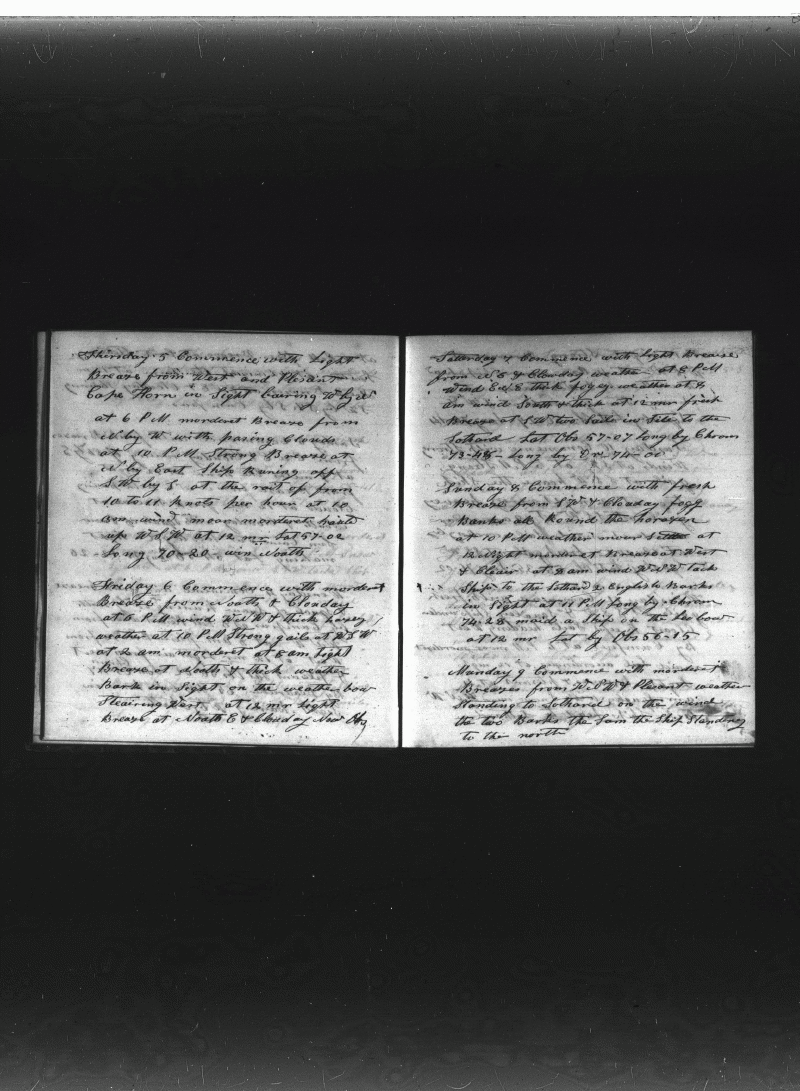 Thursday 5 Commence with Light
Breaze from West and Plesant
Cape Horn in Sight baring W by N
at 6 P M morderet Breaze from
N by W with pasing Clouds
at 10 P.M. Strong Breaze at
N by East Ship runing off
S. W by S at the rait of from
10 to 11 knots per hour at 10
wind moor morderet
up W S W at 12 mr Lat 57-02
Long 70-20 win North
Friday 6 Commence with morderet
Breaze from North & Clouday
at 6 P.M wind W N W & thick haxey
weather at 10 P M Strong gails at W S W
at 2 am morderet at 8 am light
Breaze at North & thick weather
Bark in Sight on the weather bow
Stearing West at 12 mr light
Breaze at North E & Clouday New
Saturday 7 Commence with Light Breaise
from N E & Clouday weather at 8 P M
wind E N E thick fogey weather at 8
am wind South & thick at 12 mr fresh
Breaze at S W two Sails in Site to the
Sothard Lat Obs 57-07 Long by Chrom
73-48 - Long by D r 74-00
Sunday 8 Commence with fresh
Breaze from S W & Clouday fogg
Banks all Round the horazen
at 10 P M weather moor at
12 Night morderet Breaze at West
& Clear at 8 am wind W N W tack
Ship to the Sothard 2 English Barks
in Sight at 11 P M Long by Chrom
74-28 maid a Ship on the lee bow
at 12 mr Lat by Obs 56-15
Manday 9 Commence with morderet
Breazes from W S W & Plesant weather
Standing to Sothard on the wind
the two Barks the Sam the Ship Standing
to the north